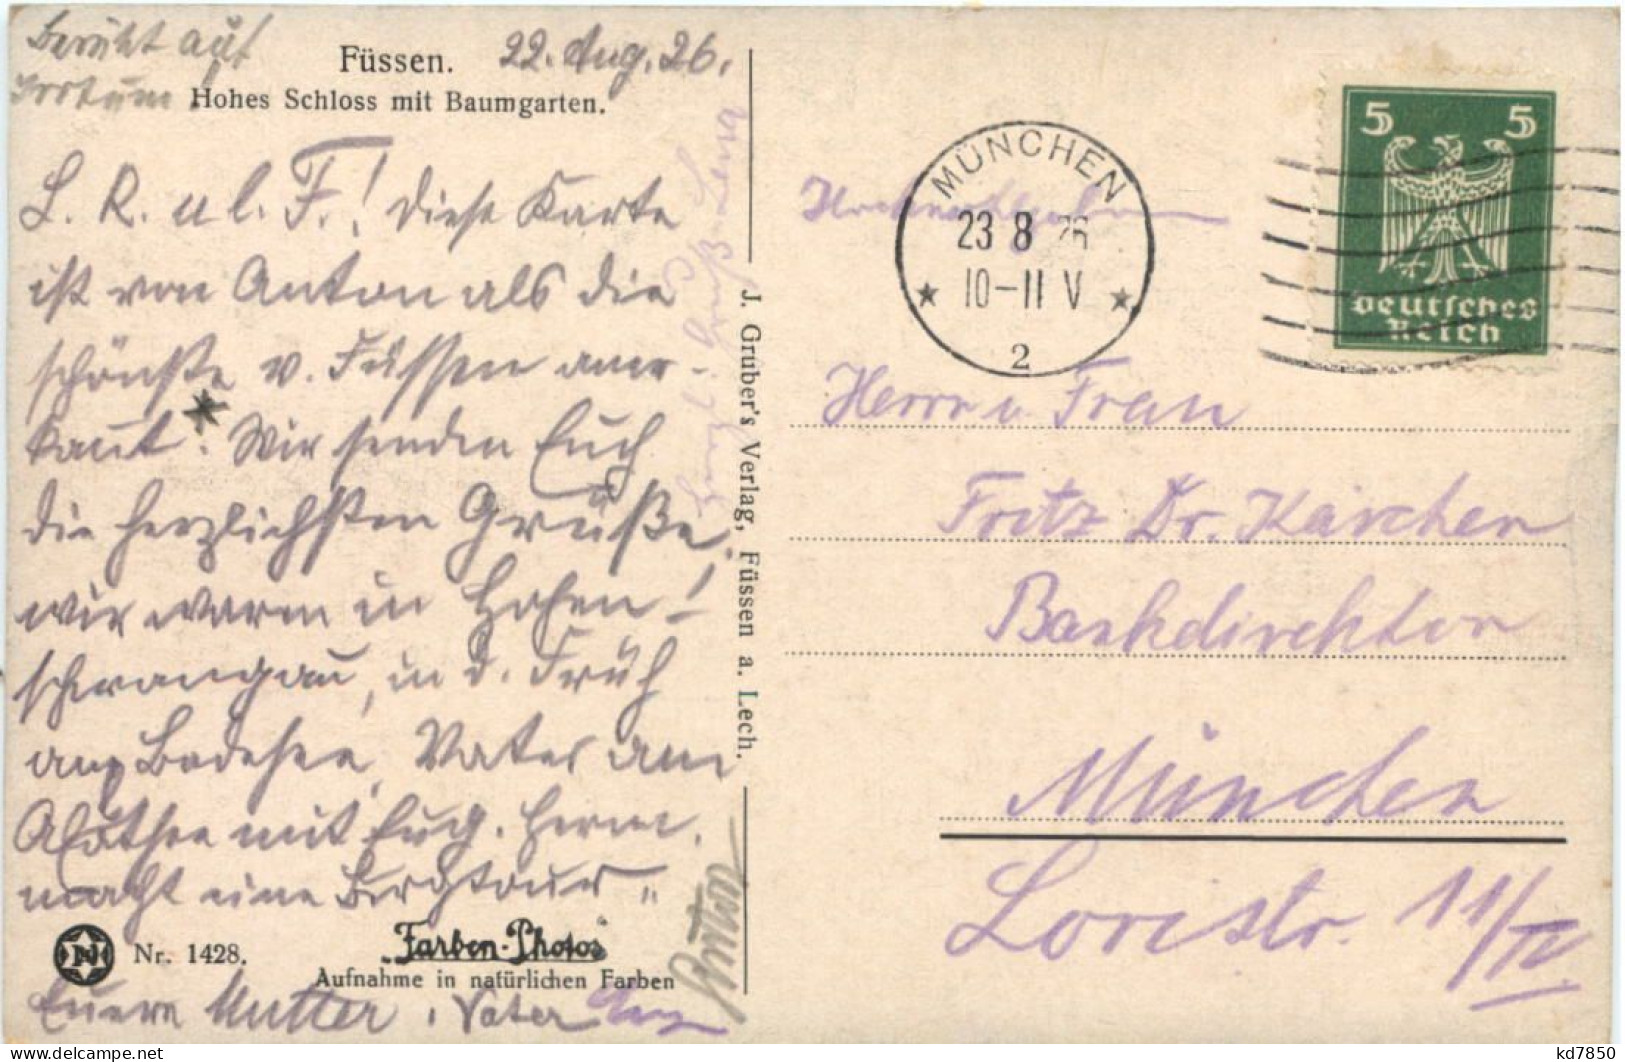 Beruht auf
Irrtum
Füssen.
22. Aug. 26.
Hohes Schloss mit Baumgarten.
L. R. u l. F.! Diese Karte
ist von Anton als die
schönste v. Füssen aner-
kannt. Wir senden Euch
die herzlichsten Grüße,
wir waren in Hohen-
schwangau, in d. Früh
am Badesee, Vater am
mit Eug. Herm.
macht eine Bergtour.
Nr. 1428.
Farben-Photos
Aufnahme in natürlichen Farben
Eure Mutter, Vater
Gruß Lena
Anton
J. Gruber's Verlag, Füssen a. Lech.
MÜNCHEN
23 8 26
10-11 V
2
5 5
Deutsches
Reich
Herrn u Frau
Fritz Dr. Kärcher
Bankdirektor
München
Loristr. 11/II
kd7850